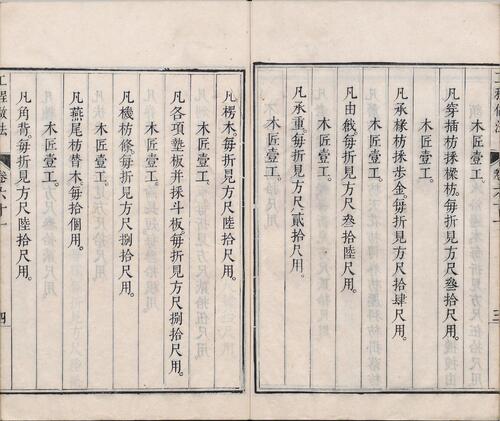 凡穿插枋採樑枋。每折見方尺叁拾尺用。
木匠壹工。
凡承椽枋採步金。每折見方尺拾肆尺用。
木匠壹工。
凡由戧。每折見方尺叁拾陸尺用。
木匠壹工。
凡承重。每折見方尺貳拾尺用。
木匠壹工。
凡楞木。每折見方尺陸拾尺用。
木匠壹工。
凡各項墊板并採斗板。每折見方尺捌拾尺用。
木匠壹工。
凡機枋條。每折見方尺捌拾尺用。
木匠壹工。
凡燕尾枋替木。每拾個用。
木匠壹工。
凡角背。每折見方尺陸拾尺用。
工程做法 卷六十一 四